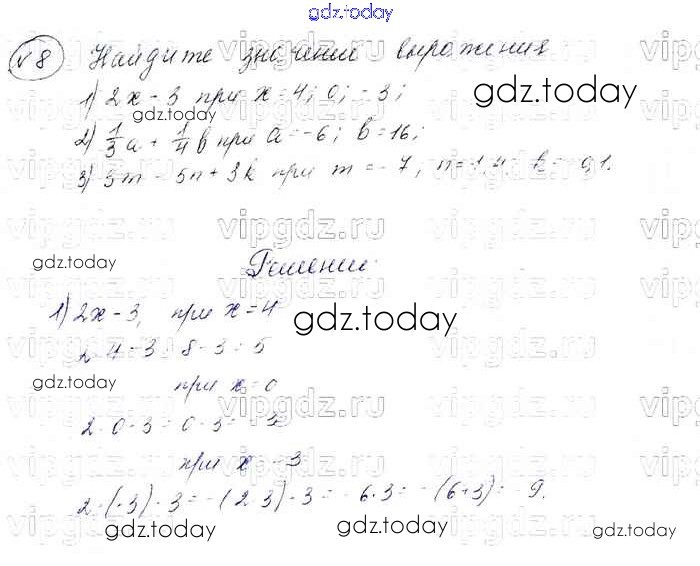 gdz.today
№8 Найдите значение выражения
1) 2x - 3 при x = 4; 0; -3;
2) 1/3 a + 1/4 b при a = -6; b = 16;
3) 3m - 5n + 3k при m = -7, n = 1,4, k = -0,1.
Решение
1) 2x - 3, при x = 4
2·4 - 3 = 8 - 3 = 5
при x = 0
2·0 - 3 = 0 - 3 = -3
при x = -3
2·(-3) - 3 = -(2·3) - 3 = -6-3 = -(6+3) = -9.
gdz.today
gdz.today
gdz.today
gdz.today
gdz.today
gdz.today
gdz.today
gdz.today
vipgdz.ru